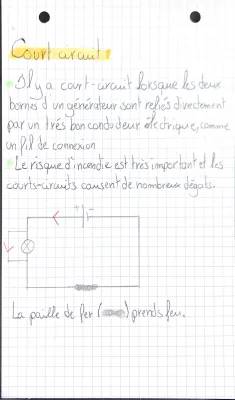 Court circuit
Il y a court-circuit lorsque les deux
bornes d'un générateur sont reliés directement
par un très bon conducteur électrique, comme
un fil de connexion
Le risque d'incendie est très important et les
courts-circuits causent de nombreux dégats.
+ -
La paille de fer ( ) prends feu.